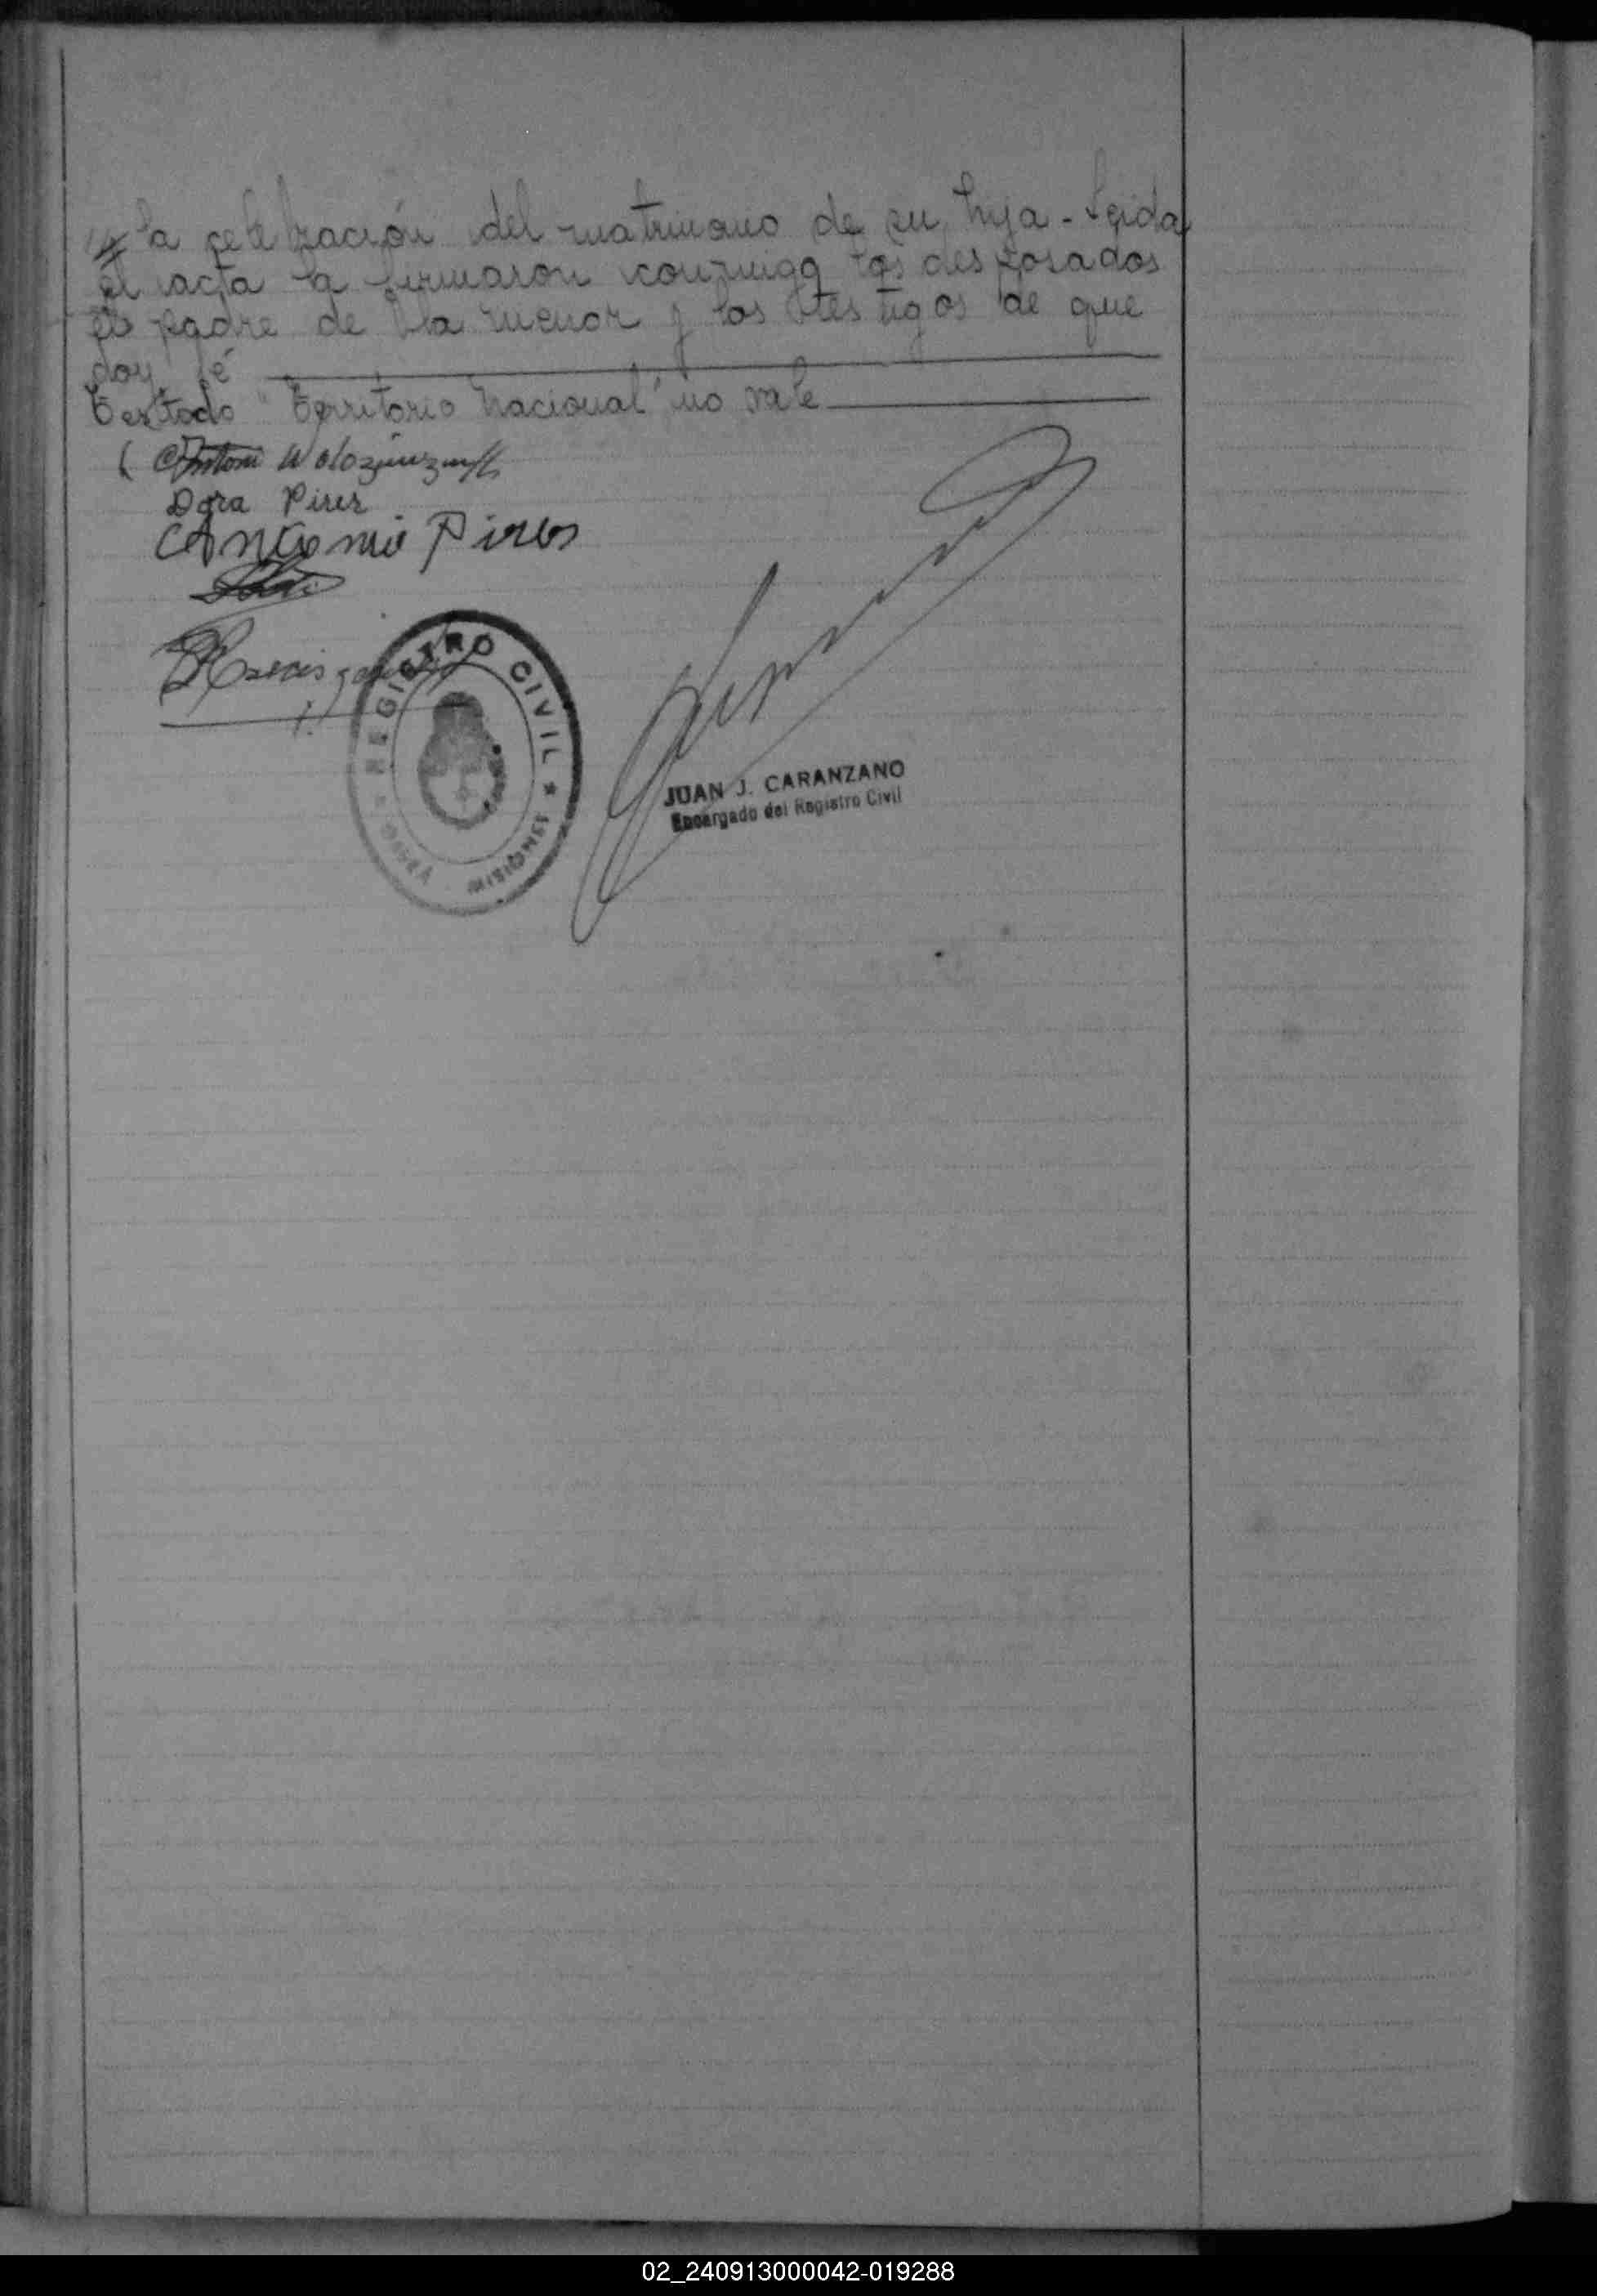 la celebración del matrimonio de su hija - Leida
el acta la firmaron conmigo los desposados
el padre de la menor y los testigos de que
doy fé
Testado "Territorio Nacional" no vale
Antoni
Dora Pires
Antonio Pires
REGISTRO CIVIL * MISIONES
JUAN J. CARANZANO
Encargado del Registro Civil
02_240913000042-019288